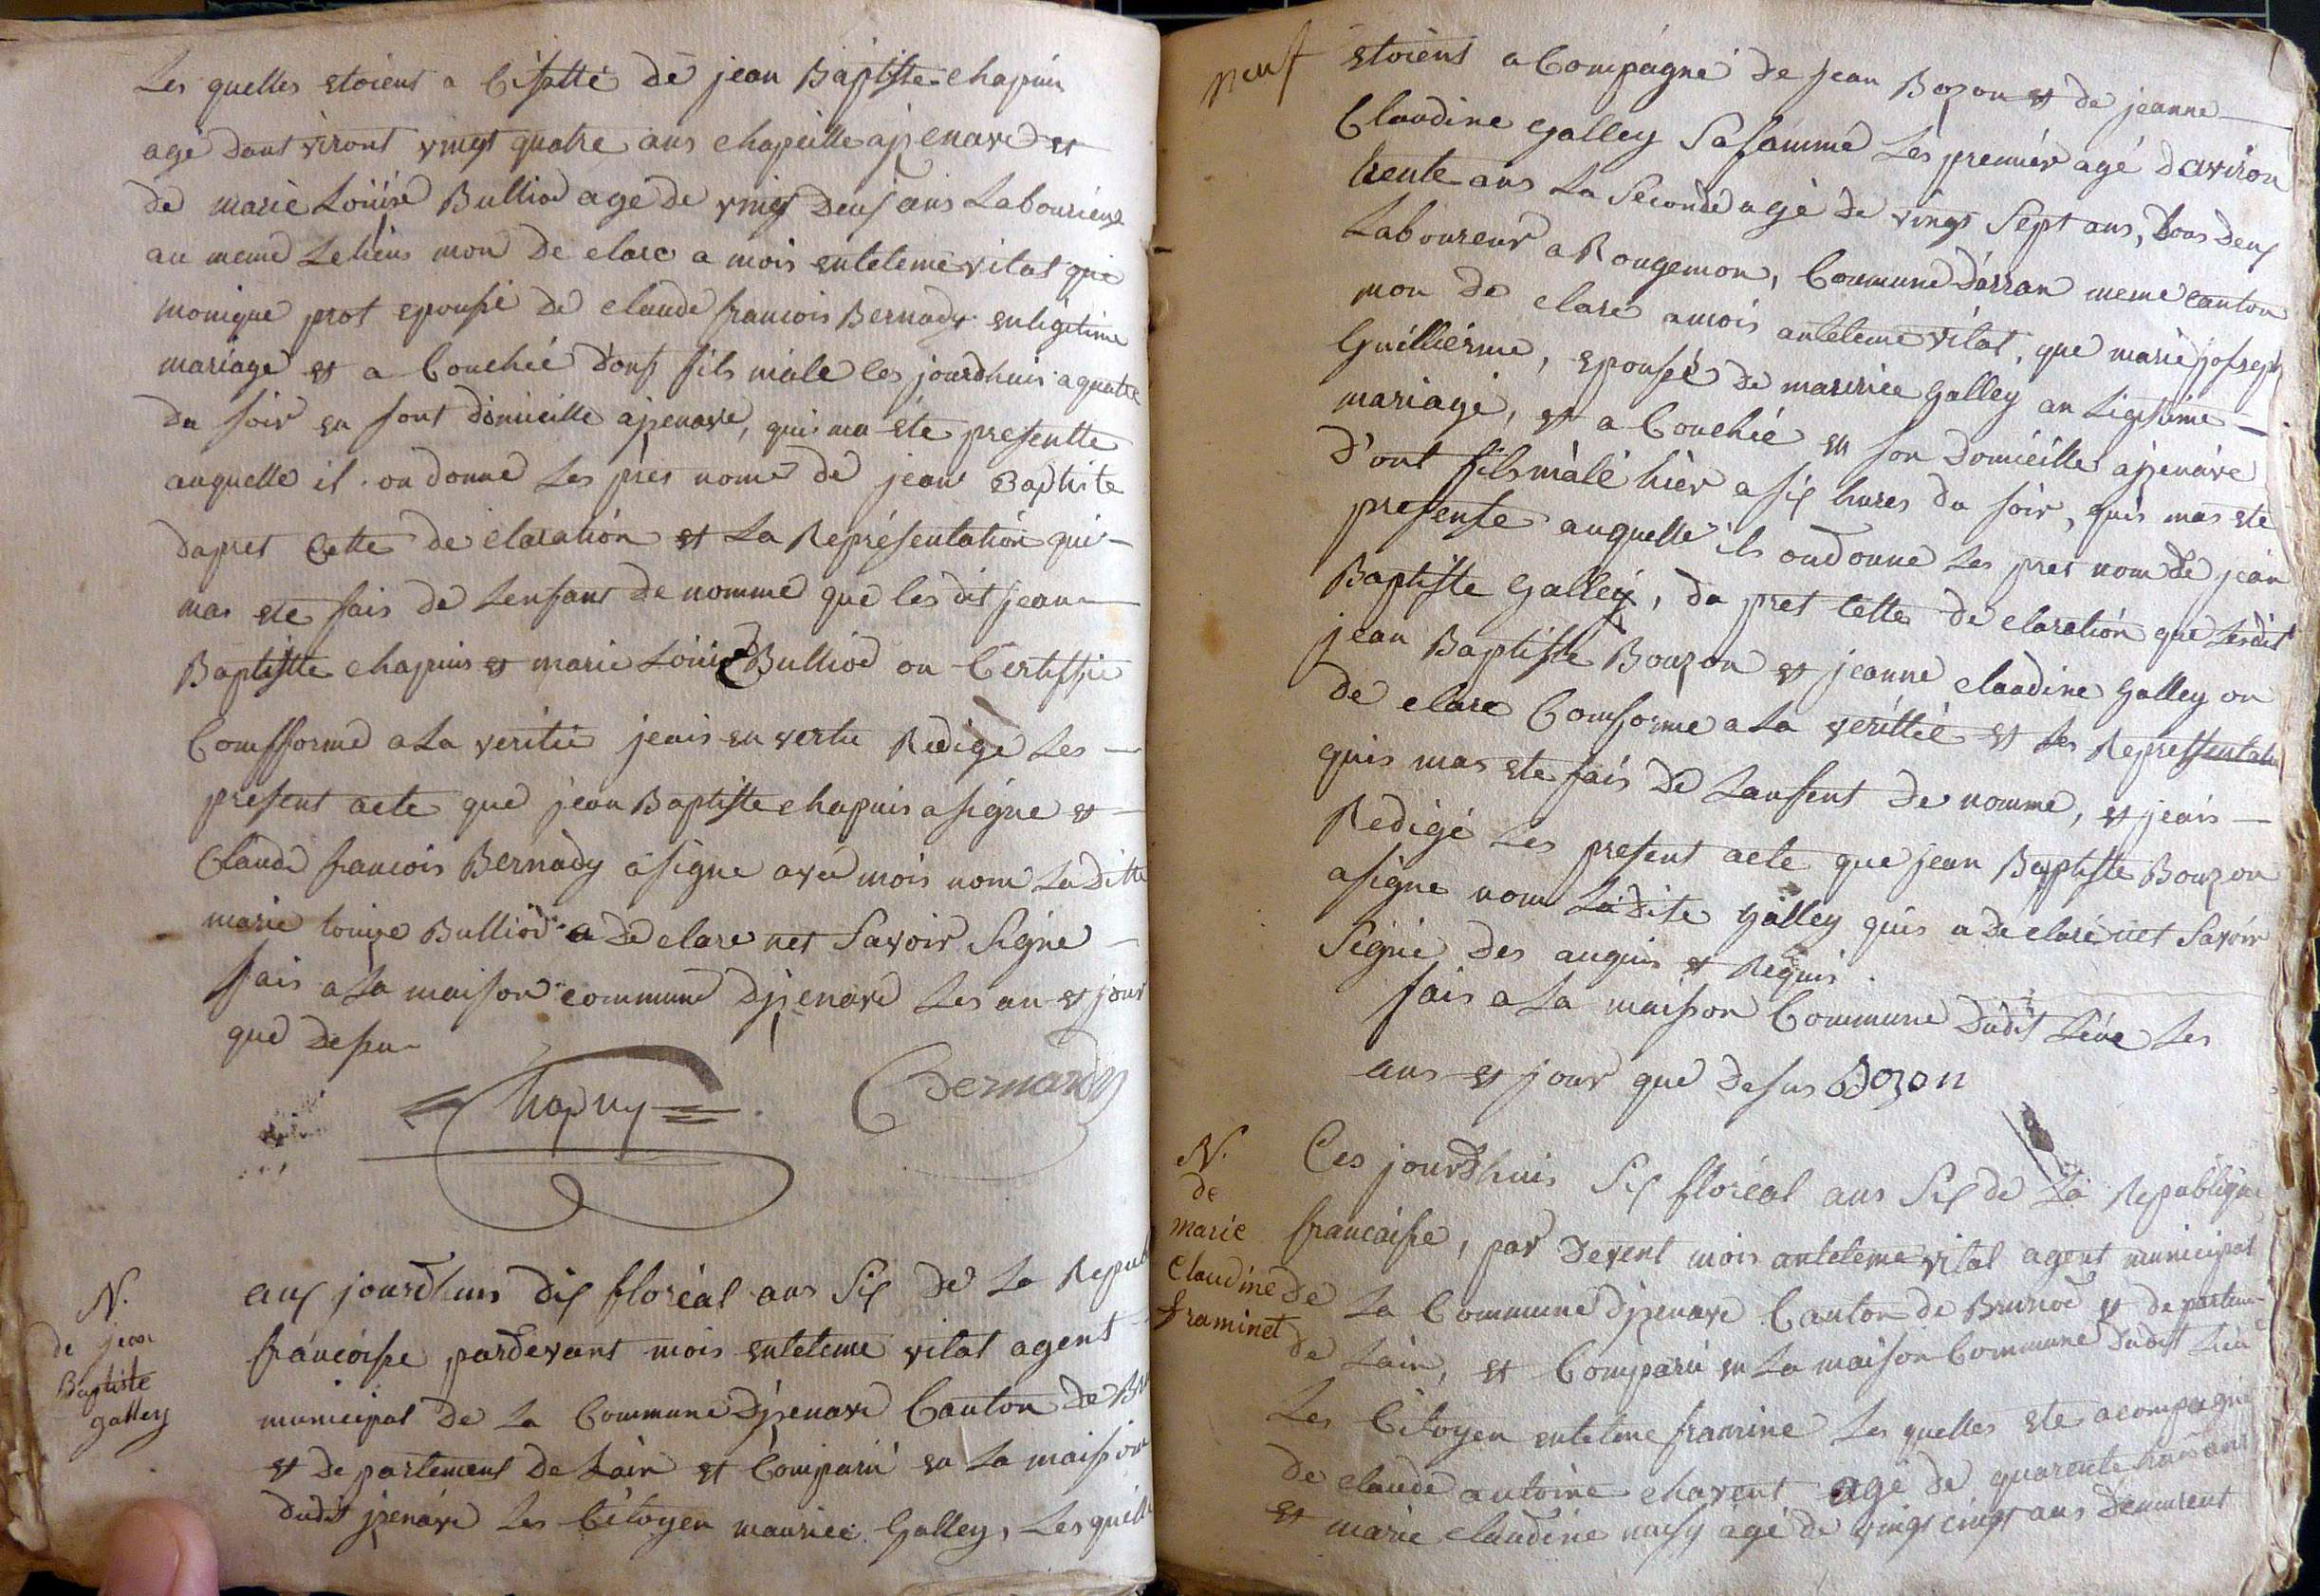 Les quelles etoient a Cisstté de jean Baptiste chapuis
agé dant viront vingt quatre ans chapeille a jzenave et
de marie Loüise Bulliod agé de vingt deux ans Labourieux
au meme Lehieus mon de clare a mois enteleme vital que
monique prot epousse de claude francois Bernady en ligitime
mariage et a Couchéé d'ons fils male ces jourdhuis a quatre
du soir en sont domicille a jzenave, qui ma éte presentte
auquelle il on donne Les pres nome de jean Baptiste
dapret Cette de claration et La Représentation qui
mas ete fais de Lenfant de nomme que les dit jean
Baptiste chapuis et marie Louise Bulliod on Certiffie
Comfforme a La veritie jeais en vertu Redige Les
present acte que jean Baptiste chapuis a signe et
Claude francois Bernady a signe aveé mois nom Laditte
marie louise Bulliod a de clare net Savoir Signe
fais a La maison commune d'jzenave Les an et jour
que desu
Chapuy Bernardy
N.
de jean
Baptiste
galley
aux jourdhuis dix floréal ans Six de La Repub
francoisse pardevant mois enteleme vital agent
municipal de La Commune d'jzenave Canton de Br
et de partement de Lain et Comparü en La maisson
dudit jzenave Les Citoyen maurice Galley, Les quelle
neuf
etoients a Compagné de jean Bozon et de jeanne
Claudine galley Safamme Les premiér agé daviron
trente ans La Seconde agé de vingt Sept ans, tous deux
Laboureur a Rougemon, Commune dárran meme canton
mon de clare a mois anteleme vital, que marie josseph
Guillierme, epousse de maurice galley an Ligitime
mariage, et a Couchéé en son domicille a jzenave
d'ont fils male hiér a six hures du soir, quis mas ete
presense auquelle ils ondonne Les pret nom de jean
Baptiste Galley, da pret Cette de claration que Lesdit
jean Baptiste Bouzon et jeanne claudine galley on
de clare Comforme a La veritteé et Les Repressentation
quis mas ete fais de Lansent de nomme, et jeais
Redigé Les present acte que jean Baptiste Bouzon
a signe nom Ladite galley quis a de claré net Savoir
Signe des auquis et Requis.
fais a La maisson Commune dudit Liéue Les
ans et jour que desus Bozon
N.
de
marie
Claudine
framinet
Ces jourdhuis Six floréal ans Six de La Republique
francaisse, par devent mois anteleme vital agent municipal
de La Commune d'jzenave Canton de Brenod et de parteme
de Lain, et Comparü en La maison Commune dudit Liéue
Les Citoyen enteleme framine Les quelles ete acompagné
de claude antoine chavent agé de quarente huis ans
et marie claudine maisy agé de vingt cinqs ans demeurent